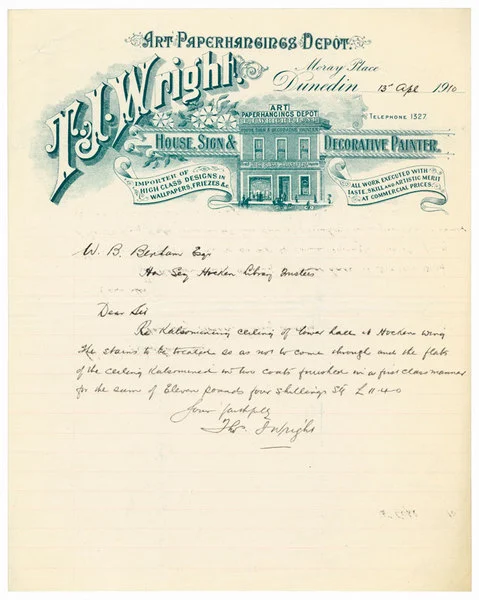 ART PAPERHANGINGS DEPÔT.
T. J. Wright.
Moray Place
Dunedin 15 Apl 1910
ART
PAPERHANGINGS DEPOT
TELEPHONE 1327
HOUSE, SIGN & DECORATIVE PAINTER.
IMPORTER OF
HIGH CLASS DESIGNS IN
WALLPAPERS, FRIEZES &c
ALL WORK EXECUTED WITH
TASTE, SKILL AND ARTISTIC MERIT
AT COMMERCIAL PRICES.
W. B. Benham Esqr
Hon Secy Hocken Library Trustees
Dear Sir
Re Kalsomining ceiling of lower hall at Hocken wing
The stains to be treated so as not to come through and the flats
of the ceiling Kalsomined in two coats finished in a first class manner
for the sum of Eleven pounds four shillings Stg £ 11-4-0
Yours faithfully
Thos J Wright